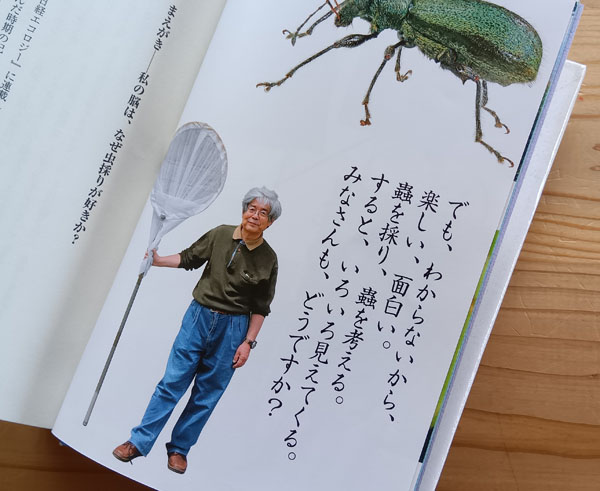 でも、わからないから、
楽しい、面白い。
蟲を採り、蟲を考える。
すると、いろいろ見えてくる。
みなさんも、どうですか?
まえがき——私の脳は、なぜ虫採りが好きか?
日経エコロジー』に連載
んだ時期の